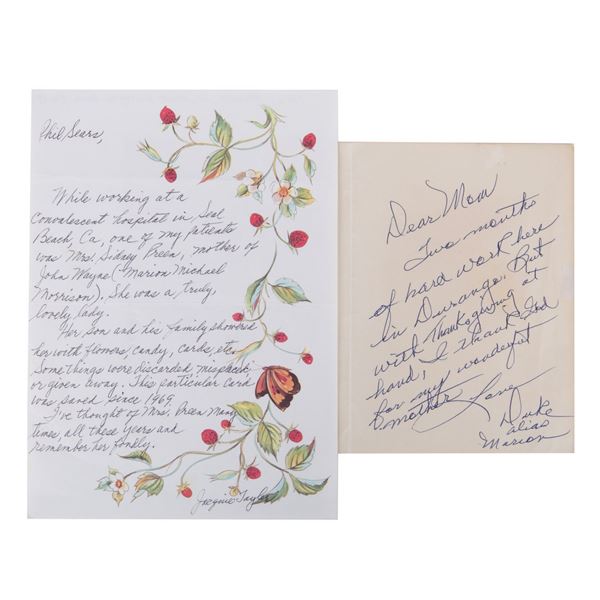 Phil Sears,
While working at a
Convalescent hospital in, Seal
Beach, Ca, one of my patients
was Mrs. Sidney Preen, mother of
John Wayne (Marion Michael
Morrison), She was a, truly,
lovely lady.
Her son and his family showered
her with flowers, candy, cards, etc.
Some things were discarded, misplaced
or given away. This particular Card
was saved since 1969
I've thought of Mrs. Preen many
times, all these years and
remember her fondly.
Jacquie Taylor
Dear Mom
Two months
of hard work here
in Durango. But
with Thanksgiving at
hand, I thank God
for my wonderful
mother Love
Duke
alias
Marion